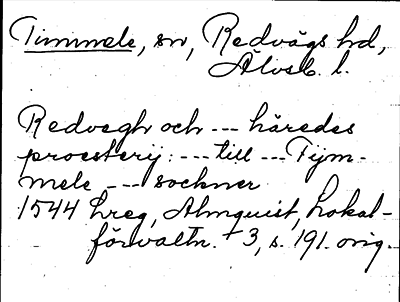 Timmele, sn, Redvägs hd,
Älvsb. l.
Redvegh och --- häredes
proesterij: --- till --- Tijm-
mele --- sockner
1544 Lreg, Almquist, Lokal-
förvaltn. + 3, s. 191. orig.